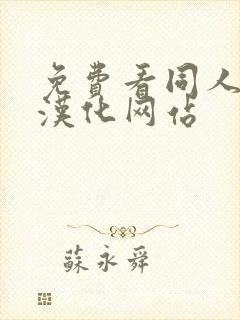 免費看同人
漢化网站
蘇永舜